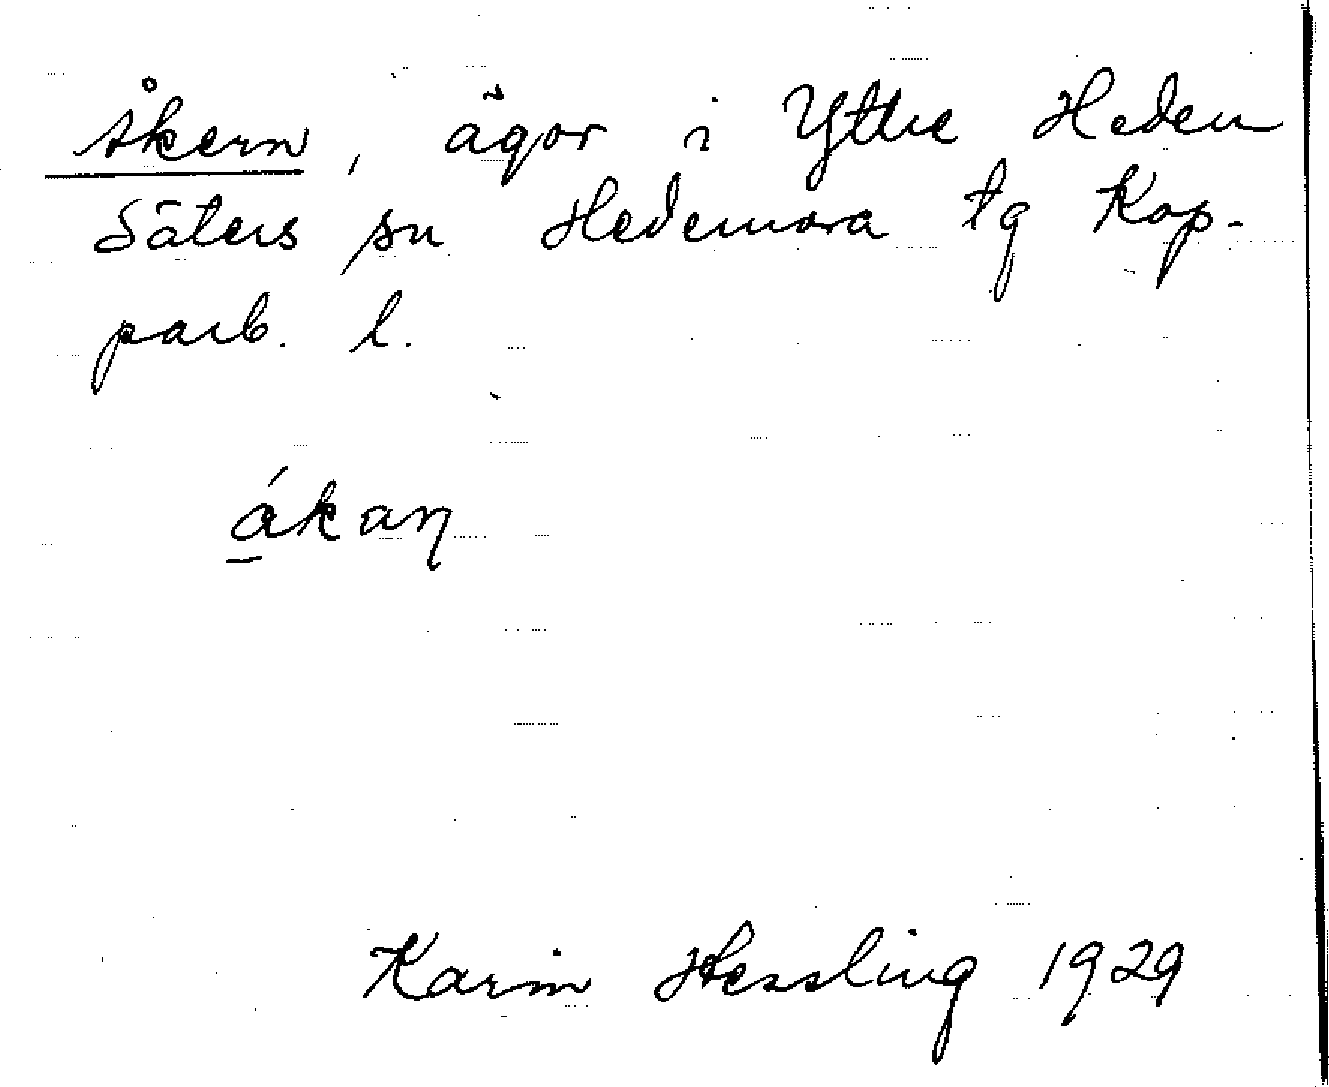 Åkern, ägor i Yttre Heden
Säters sn Hedemora tg Kop-
parb. l.
á̱kaŋ
Karin Hessling 1929